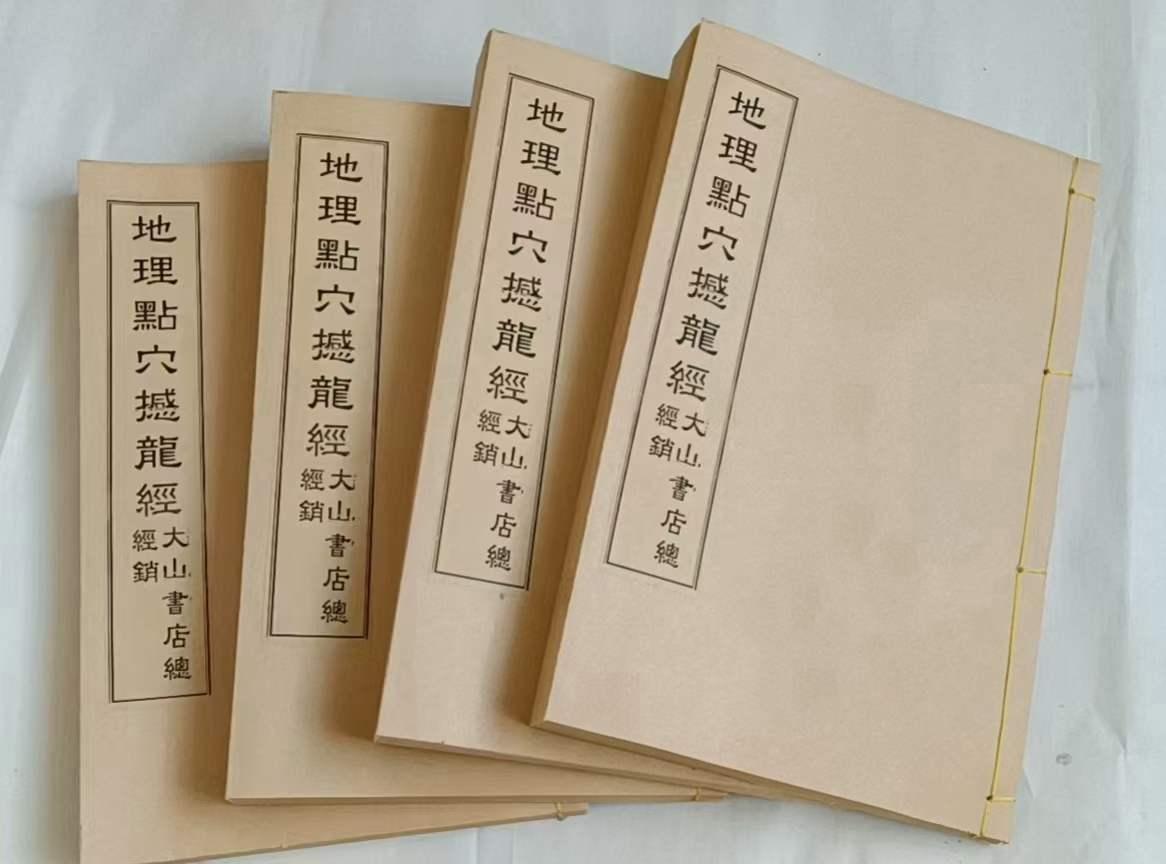 地理點穴撼龍經
大山書店總
經銷
地理點穴撼龍經
大山書店總
經銷
地理點穴撼龍經
大山書店總
經銷
地理點穴撼龍經
大山書店總
經銷